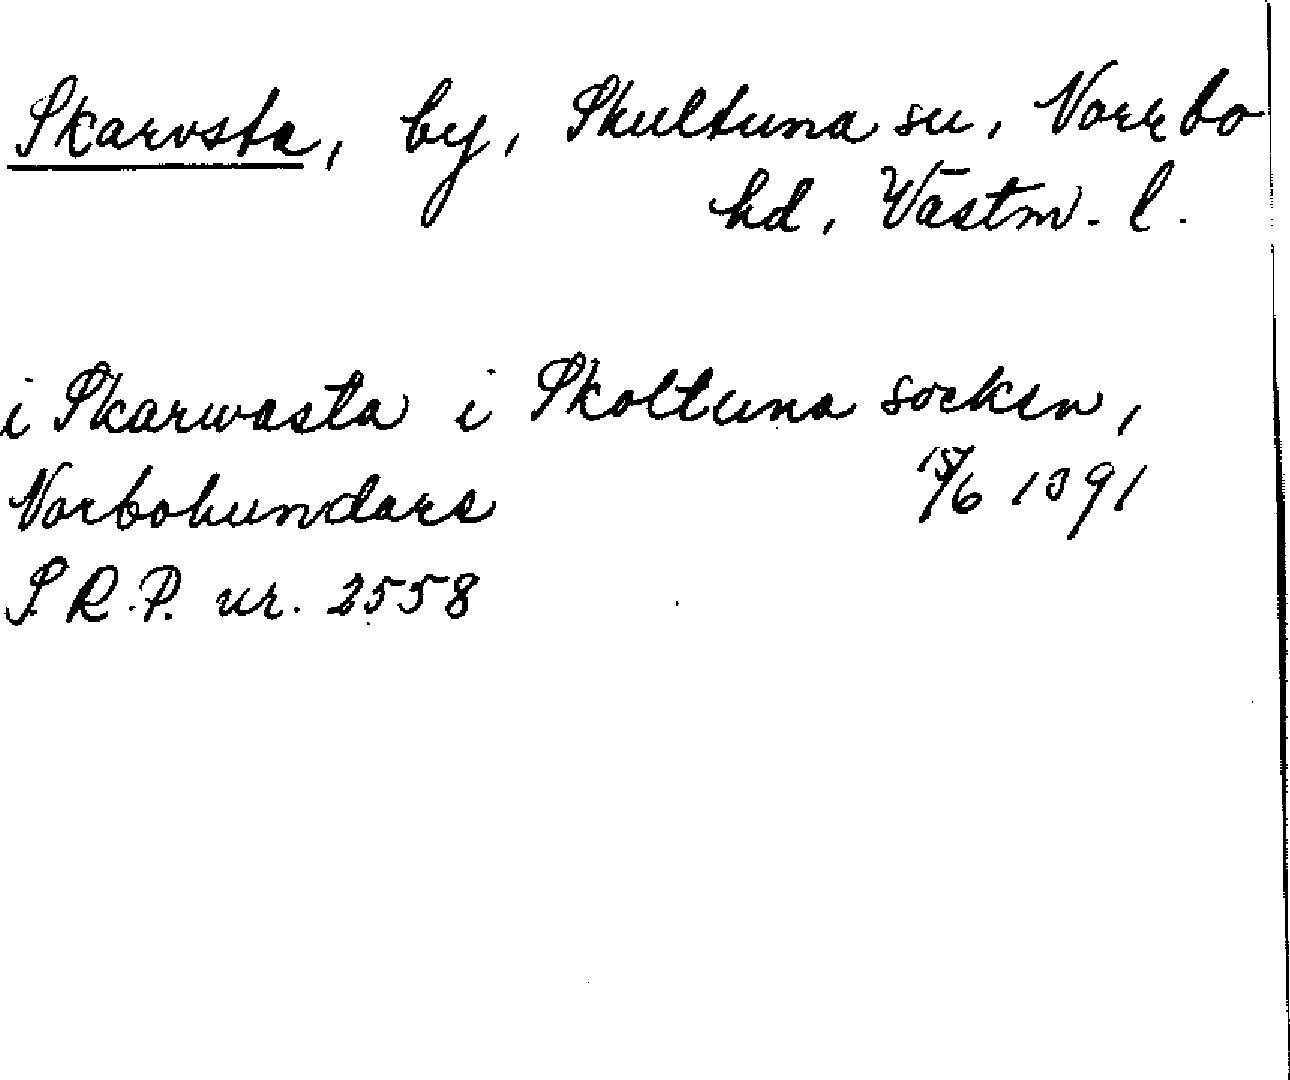 Skarvsta, by, Skultuna sn, Norrbo
hd, Västm. l.
i Skarwasta i Skoltuna socken,
Norbohundare
15/6 1391
S.R.P. nr. 2558